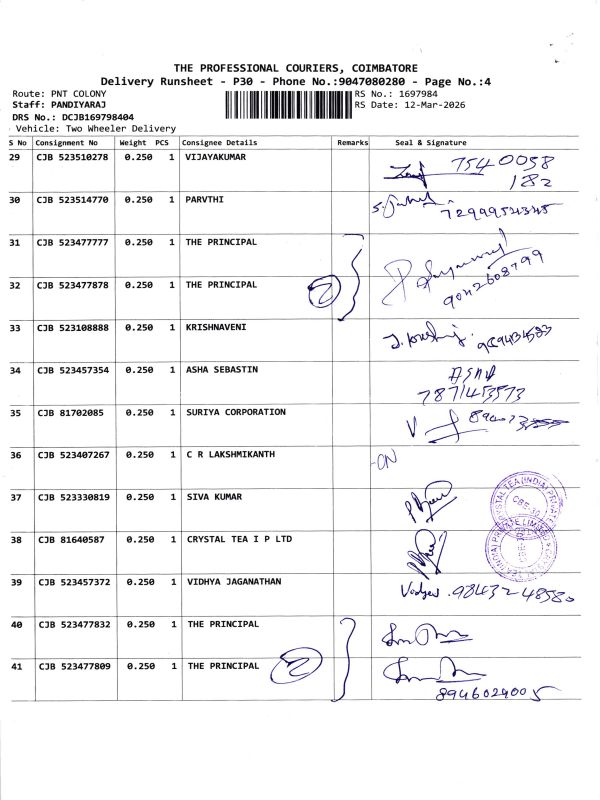 THE PROFESSIONAL COURIERS, COIMBATORE
Delivery Runsheet - P30 - Phone No.:9047080280 - Page No.:4
Route: PNT COLONY RS No.: 1697984
Staff: PANDIYARAJ RS Date: 12-Mar-2026
DRS No.: DCJB169798404
Vehicle: Two Wheeler Delivery
S No Consignment No Weight PCS Consignee Details Remarks Seal & Signature
29 CJB 523510278 0.250 1 VIJAYAKUMAR 7540058
182
30 CJB 523514770 0.250 1 PARVTHI
31 CJB 523477777 0.250 1 THE PRINCIPAL
32 CJB 523477878 0.250 1 THE PRINCIPAL 2 9042608799
33 CJB 523108888 0.250 1 KRISHNAVENI
34 CJB 523457354 0.250 1 ASHA SEBASTIN ASHA
7871453573
35 CJB 81702085 0.250 1 SURIYA CORPORATION
36 CJB 523407267 0.250 1 C R LAKSHMIKANTH -ON
37 CJB 523330819 0.250 1 SIVA KUMAR
38 CJB 81640587 0.250 1 CRYSTAL TEA I P LTD
39 CJB 523457372 0.250 1 VIDHYA JAGANATHAN 9843248580
40 CJB 523477832 0.250 1 THE PRINCIPAL
41 CJB 523477809 0.250 1 THE PRINCIPAL 2
8946029005